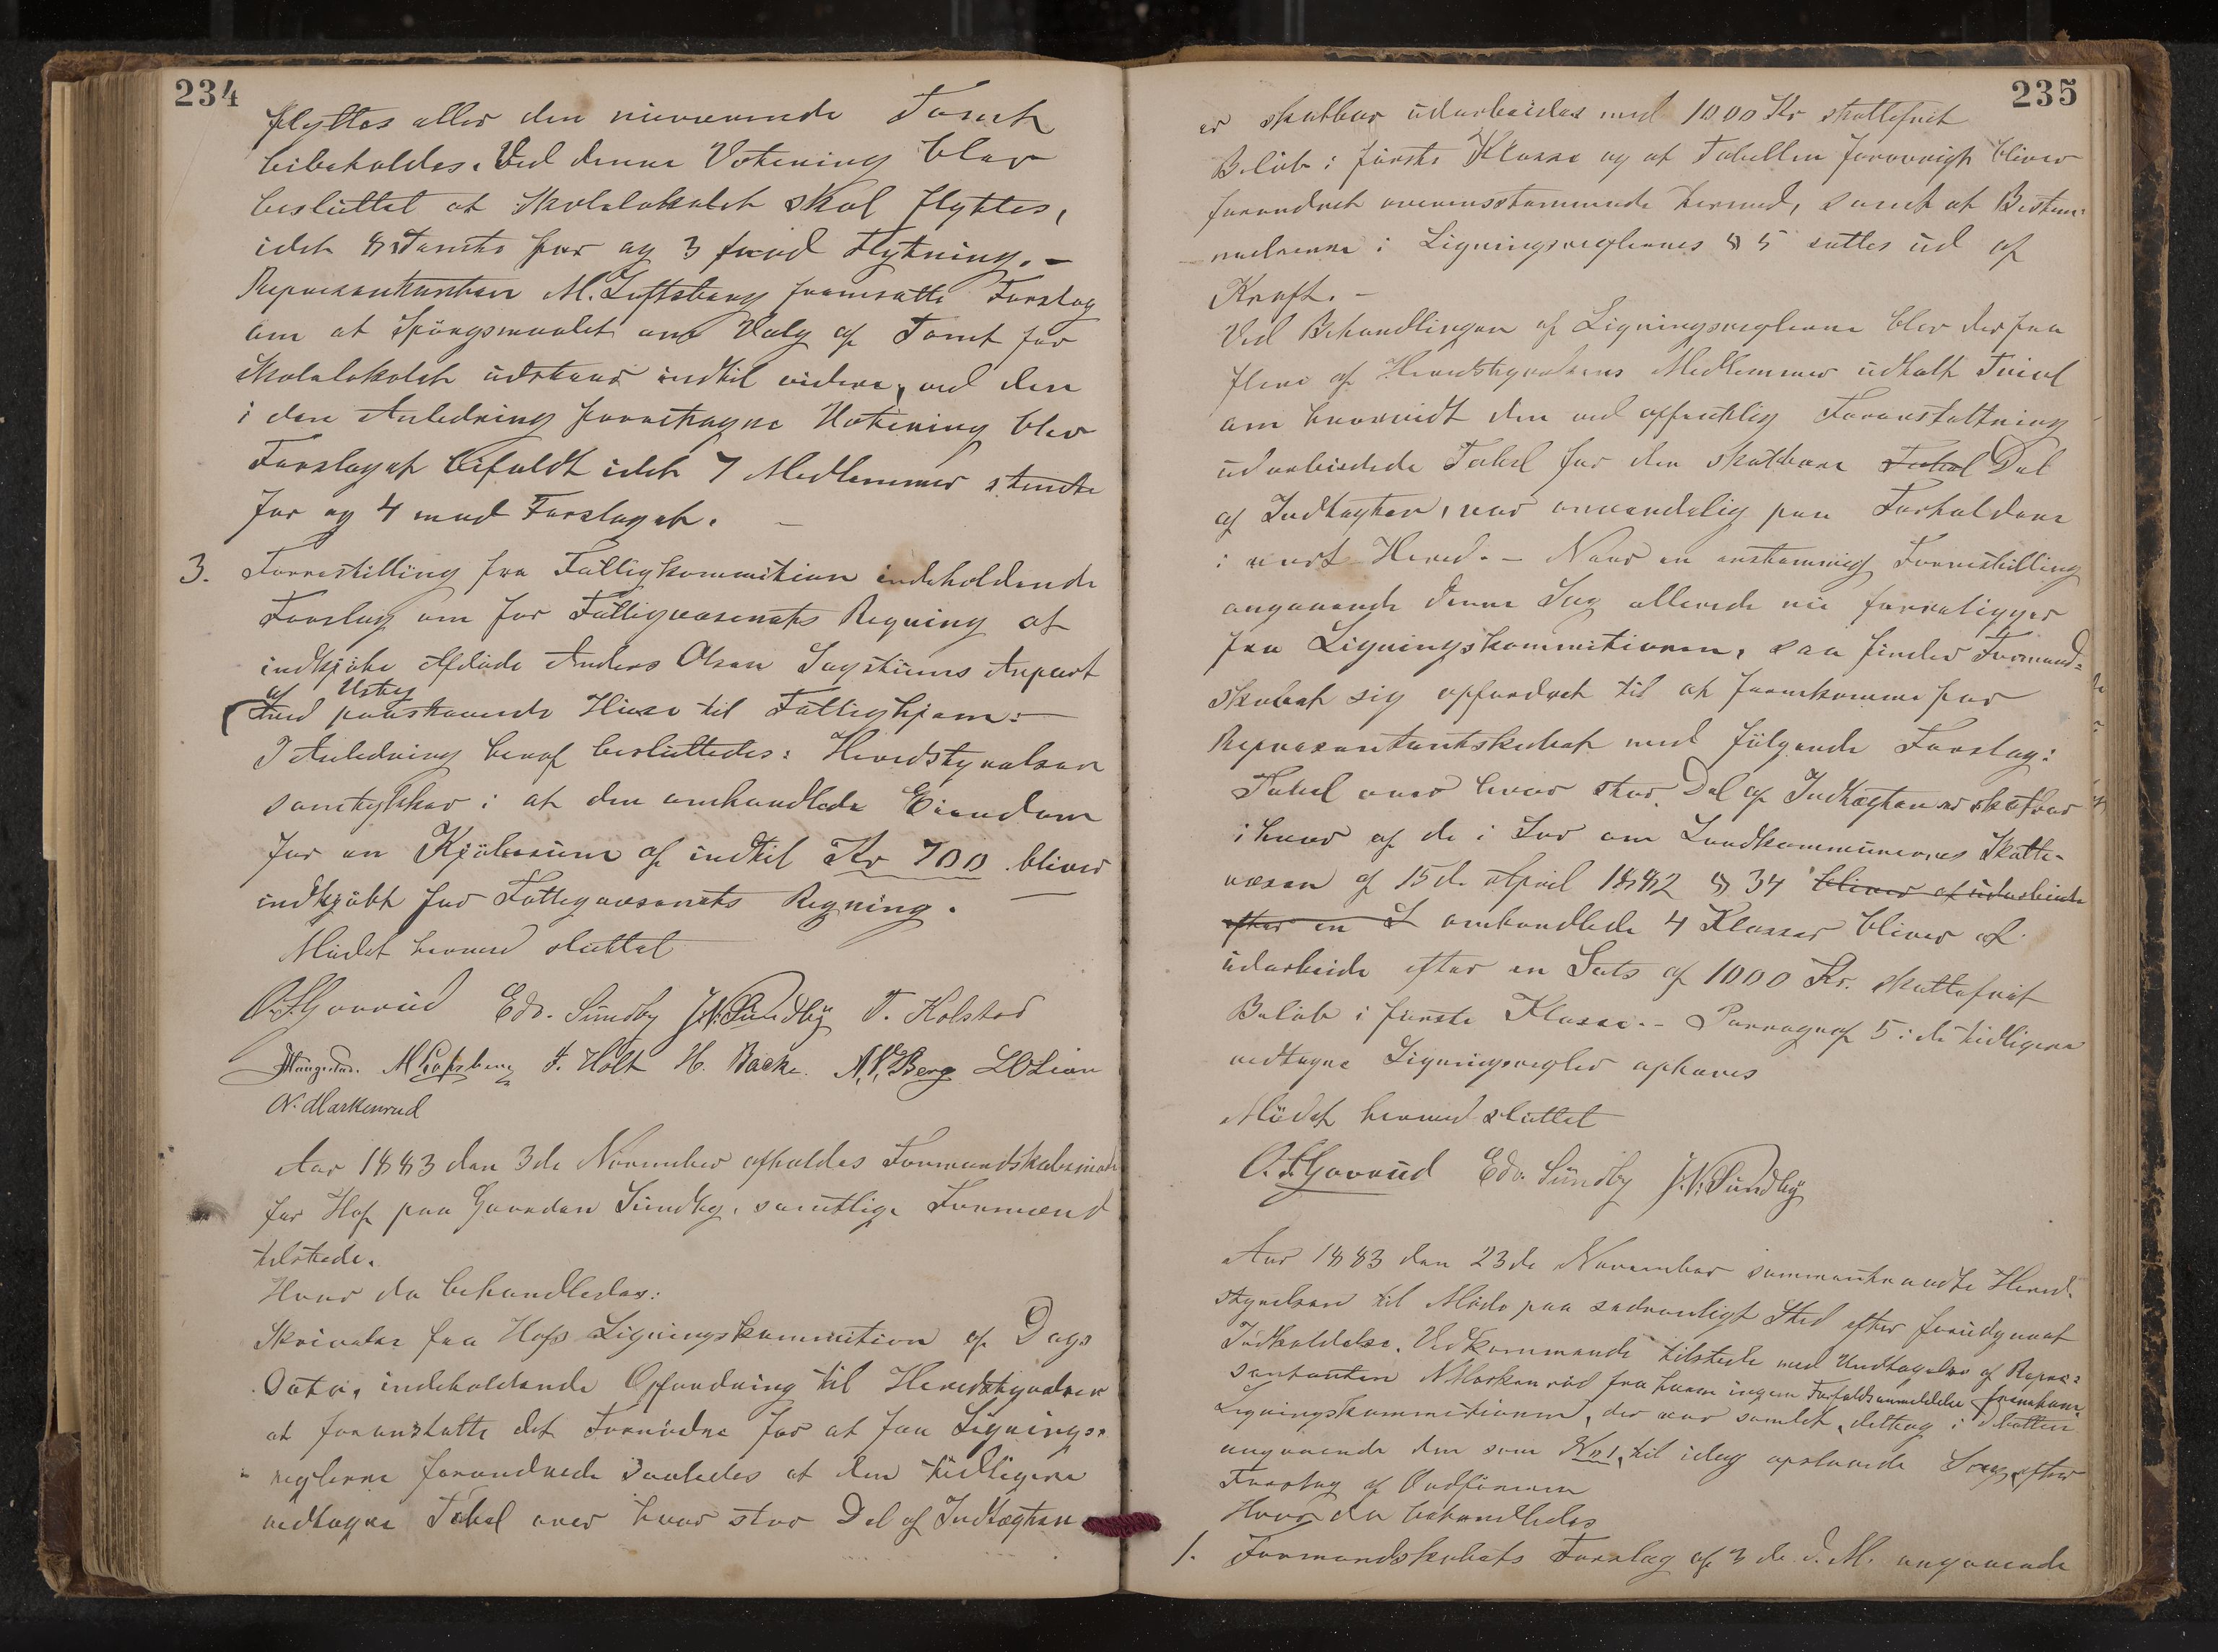 234
flyttes eller den nuværende Tomt
bibeholdes. Ved denne Votering blev
besluttet at Skolelokalet skal flyttes,
idet 8 stemte for og 3 imod Flytning. –
Repræsentanten M. Loftsberg fremsatte Forslag
om at Spörgsmaalet om Valg af Tomt for
Skolelokalet udstaar indtil videre, ved den
i den Anledning foretagne Votering blev
Forslaget bifaldt idet 7 Medlemmer stemte
for og 4 mod Forslaget. –
3. Forestilling fra Fattigkommitionen indeholdende
Forslag om for Fattigvæsenets Regning at
indkjøbe Afdøde Anders Olsen Anpart
af Ustey
med paastaaende Huse til Fattighjem: –
I Anledning heraf besluttedes: Heredstyrelsen
samtykker i at den omhandlede Eiendom
for en Kjöbesum af indtil Kr 700 bliver
indkjøbt for Fattigvæsenets Regning. –
Mödet hermed sluttet
O. S. Gaarud Edv. Sundby J. N. Sundby T. Holstad
M Loftsberg F. Holt H. Backe. A. N. Berg L O Lien
N. Markenrud
Aar 1883 den 3de November afholdes Formandskabsmöde
for Hof paa Gaarden Sundby, samtlige Formænd
tilstede.
Hvor da behandledes:
Skrivelse fra Hofs Ligningskommition af Dags
Dato, indeholdende Opfordring til Heredstyrelsen
at foranstalte det Fornödne for at faa Lignings-
reglerne forandrede saaledes at den tidligere
vedtagne Tabel over hvor stor Del af Indtægten
235
er skatbar udarbeides med 1000 Kr skattefrit
Belöb i förste Klasse og at Tabellen forövrigt bliver
forandret overensstemmende dermed, samt at Bestem-
melserne i Ligningsreglernes § 5 sættes ud af
Kraft. –
Ved Behandlingen af Ligningsreglerne blev der fra
flere af Heredstyrelsens Medlemmer udtalt Tvivl
om hvorvidt den ved offentlig Foranstaltning
udarbeidede Tabel for den skatbare Tabel Del
af Indtægten, var anvendelig paa Forholdene
i vort Hered. – Naar en enstemmig Forestilling
angaaende denne Sag allerede nu foreligger
fra Ligningskommitionen, saa finder Formand-
skabet sig opfordret til at fremkomme for
Repræsentantskabet med fölgende Forslag:
Tabel over hvor stor Del af Indtægten er skatbar
i hver af de i Lov om Landkommunernes Skatte-
væsen af 15de April 1882 § 34 bliver at udarbeide
efter en S omhandlede 4 Klasser bliver at
udarbeide efter en Sats af 1000 Kr. skattefrit
Belöb i förste Klasse. – Paragraf 5 i de tidligere
vedtagne Ligningsregler ophæves
Mödet hermed sluttet
O. S. Gaarud Edv. Sundby J. N. Sundby
Aar 1883 den 23de November sammentraadte Hered-
styrelsen til Möde paa sædvanligt Sted efter forudgaaet
Indkaldelse. Vedkommende tilstede med Undtagelse af Repræ-
sentanten N Markenrud fra hvem ingen Forfaldsanmeldelse fremkom.
Ligningskommitionen, der var samlet, deltog i Debatten
angaaende den som No 1, til idag opstaaede Sag, efter
Forslag af Ordföreren
Hvor da behandledes
1. Formandskabets Forslag af 3de d. M. angaaende